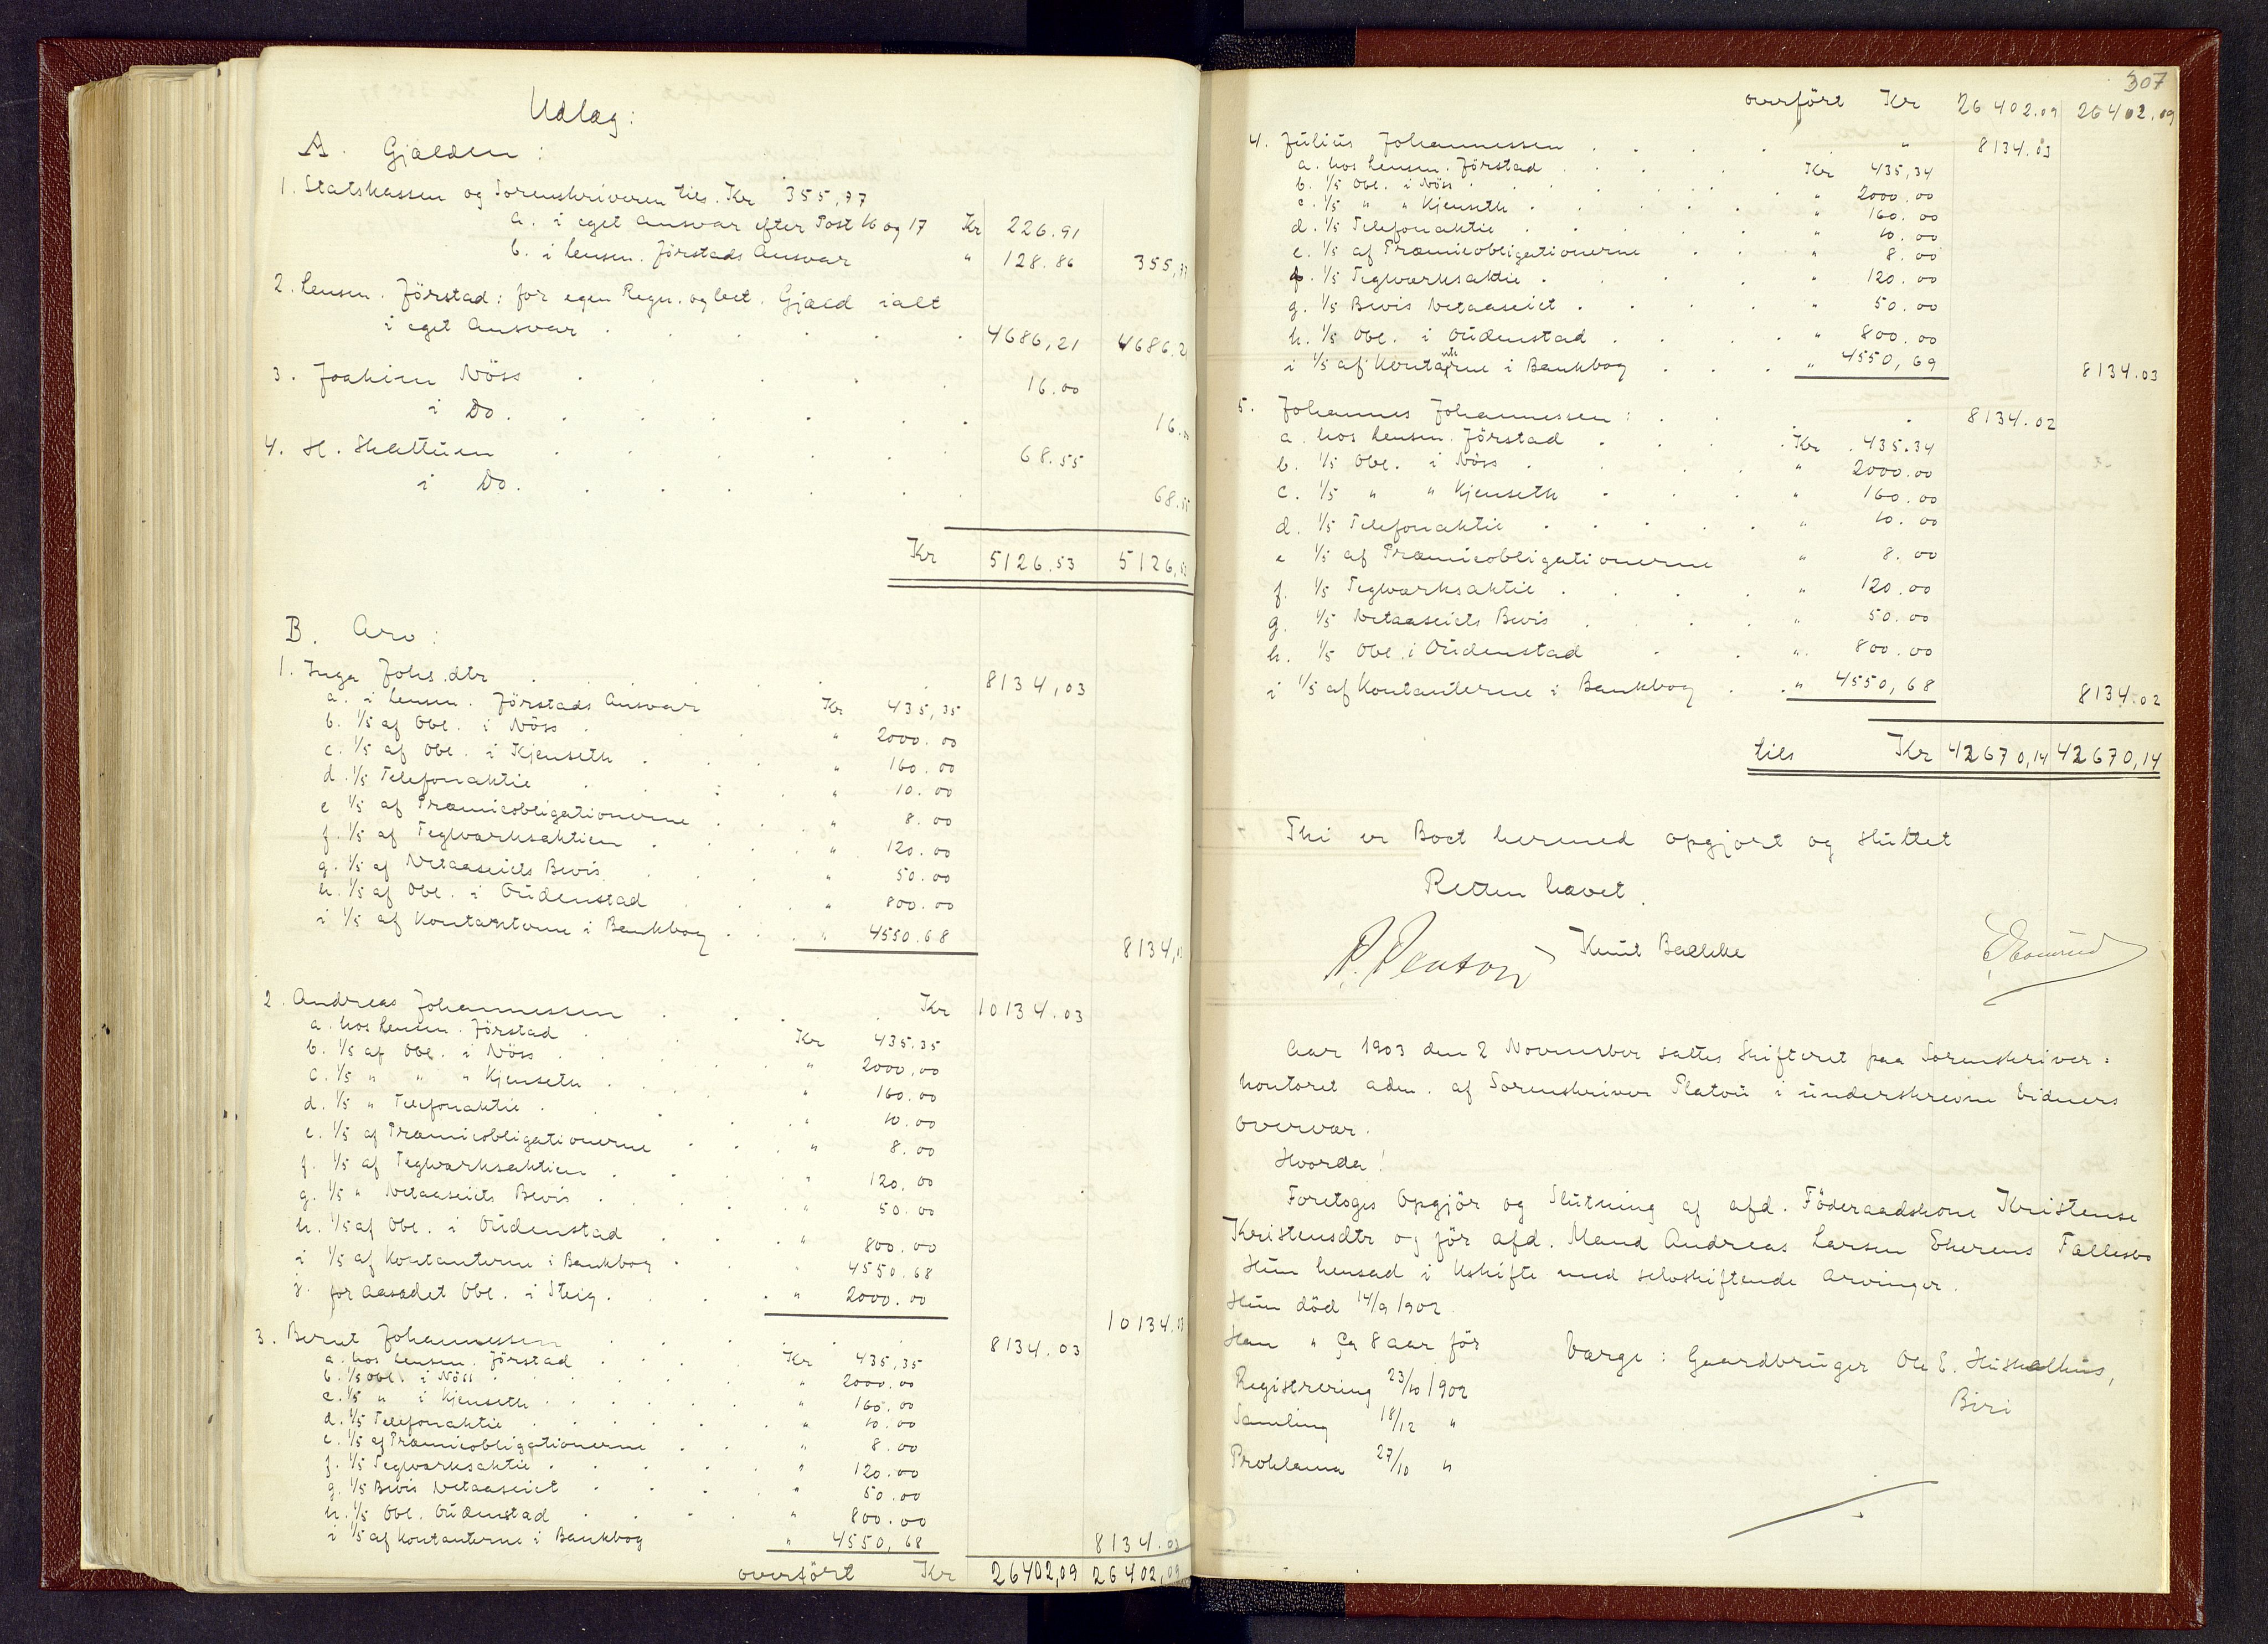 Udlæg:
A. Gjælden:
1. Statskassen og Sorenskriveren tils. Kr 355,77
a. i eget Ansvar efter Post 16 og 17 Kr 226.91
b. i Lensm. Jörstads Ansvar " 128.86 355,77
2. Lensm. Jörstad: for egen Regn. og bet. Gjæld ialt
i eget Ansvar . . . . . 4686,21 4686.21
3. Joakim Nöss . . . . 16.00
i Do. . . . . . 16.00
4. H. Skattum . . . . . 68.55
i Do. . . . . . 68.55
Kr 5126.53 5126,53
B. Arv:
1. Inga Johs.dtr . . . . . 8134,03
a. i Lensm. Jörstads Ansvar Kr 435,35
b. 1/5 af Obl. i Nöss . . . " 2000.00
c. 1/5 af Obl. i Kjenseth . . . " 160.00
d. 1/5 Telefonaktie . . " 10.00
e 1/5 af Præmieobligationerne . . " 8.00
f. 1/5 af Teglværksaktien . . . " 120.00
g. 1/5 af Vetaaseiets Bevis . . . " 50.00
h. 1/5 af Obl. i Oudenstad . . . " 800.00
i 1/5 af Kontanterne i Bankbog . . . " 4550.68 8134,03
2. Andreas Johannessen . . . Kr 10134.03
a. hos Lensm. Jörstad . . Kr 435.35
b. 1/5 af Obl. i Nöss . . . " 2000,00
c. 1/5 " " " Kjenseth . . . " 160.00
d. 1/5 " Telefonaktie . . . " 10.00
e. 1/5 af Præmieobligationerne . . . " 8.00
f. 1/5 af Teglværksaktien . . . " 120.00
g. 1/5 " Vetaaseiets Bevis . . . " 50.00
h. 1/5 af Obl. i Oudenstad . . . " 800.00
i 1/5 af Kontanterne i Bankbog . . " 4550.68
j. for Aasædet Obl. i Steig . . . " 2000.00 10134.03
3. Bernt Johannessen . . . . 8134.03
a. hos Lensm. Jörstad . . . Kr 435,35
b. 1/5 Obl. i Nöss . . . . " 2000.00
c. 1/5 " i Kjenseth . . . . " 160.00
d. 1/5 Telefonaktie . . . . " 10.00
e. 1/5 af Præmieobligationerne . . " 8.00
f. 1/5 Teglværksaktie . . . . " 120.00
g. 1/5 Bevis Vetaaseiet . . . . " 50.00
h. 1/5 Obl. Oudenstad . . . . " 800.00
i 1/5 af Kontanterne i Bankbog " 4550,68 8134.03
overfört Kr 26402,09 26402,09
307
overfört Kr 26402.09 26402.09
4. Julius Johannessen . . . . " 8134.03
a. hos Lensm. Jörstad . . . Kr 435,34
b. 1/5 Obl. i Nöss . . . . " 2000.00
c. 1/5 " " Kjenseth . . . . " 160.00
d. 1/5 Telefonaktie . . . . " 10.00
e. 1/5 af Præmieobligationerne . . " 8.00
f. 1/5 Teglværksaktie . . . . " 120.00
g. 1/5 Bevis Vetaaseiet . . . . " 50.00
h. 1/5 Obl. i Oudenstad . . . . " 800.00
i 1/5 af Kontanterne i Bankbog . . . " 4550,69 8134.03
5. Johannes Johannessen: . . . 8134.02
a. hos Lensm. Jörstad . . . . Kr 435.34
b. 1/5 Obl. i Nöss . . . . " 2000.00
c. 1/5 " " Kjenseth . . . " 160.00
d. 1/5 Telefonaktie . . . . . " 10.00
e 1/5 af Præmieobligationerne " 8.00
f. 1/5 Teglværksaktie . . . . " 120.00
g. 1/5 Vetaaseiets Bevis . . . . " 50.00
h. 1/5 Obl. i Oudenstad . . " 800.00
i 1/5 af Kontanterne i Bankbog . . " 4550,68 8134.02
tils Kr 42670,14 42670,14
Thi er Boet hermed opgjort og sluttet
Retten hævet.
Knut Bakke
Aar 1903 den 2 November sattes Skifteret paa Sorenskriver=
kontoret adm. af Sorenskriver Platou i underskrevne Vidners
Overvær.
Hvorda!
Foretoges Opgjör og Slutning af afd. Föderaadskone Kristense
Kristensdtr og för afd. Mand Andreas Larsen Ekerens Fællesbo
Hun hensad i Uskifte med selvskiftende Arvinger.
Hun död 14/9 1902
Han " Ca 8 Aar för
Værge: Gaardbruger Ole E. Huskelhus,
Biri
Registrering 23/10 1902
Samling 18/12 "
Proklama 27/10 "